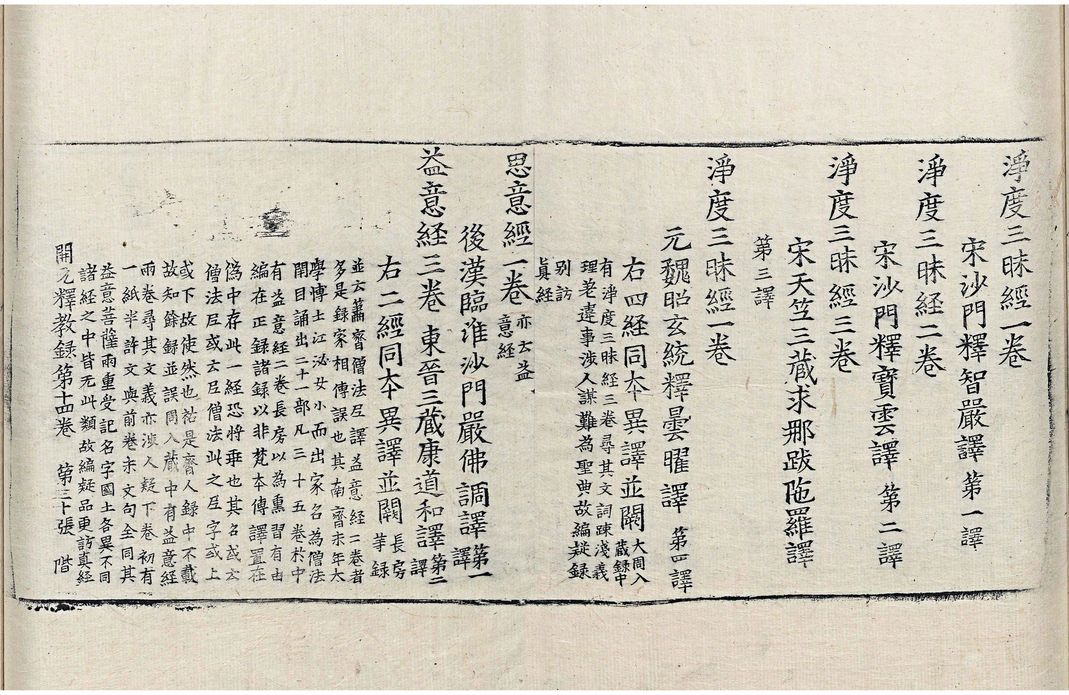 淨度三昧經一卷
宋沙門釋智嚴譯 第一譯
淨度三昧経二卷
宋沙門釋寶雲譯 第二譯
淨度三昧經三卷
宋天笁三藏求那跋陁羅譯
第三譯
淨度三昧經一卷
元魏昭玄統釋曇曜譯 第四譯
右四経同夲異譯並闕 大周入藏録中
有淨度三昧經三卷尋其文詞踈淺義
理差違事涉人謀難為聖典故編疑録
别訪
真経
思意經一卷 亦云益意経
後漢臨淮沙門嚴佛調譯 第一譯
益意経三卷 東晉三藏康道和譯 第二譯
右二經同夲異譯並闕 長房等録
並云蕭齊僧法尼譯益意経二卷者
多是録家相傳誤也其南齊末年太
學博士江泌女小而出家名為僧法
閇目誦出二十一部凡三十五卷於中
有益意經二卷長房以為熏習有由
編在正録諸録以非梵本傳譯置在
僞中存此一經恐將乖也其名或云
僧法尼或云尼僧法此之尼字或上
或下故使然也祐是齊人録中不載
故知餘録並誤周入藏中有益意經
兩卷尋其文義亦涉人疑下卷初有
一紙半許文與前卷末文句全同其
益意菩薩兩重受記名字國土各異不同
諸経之中皆无此類故編疑品更訪真経
開元釋教録第十四卷 第三十張 階